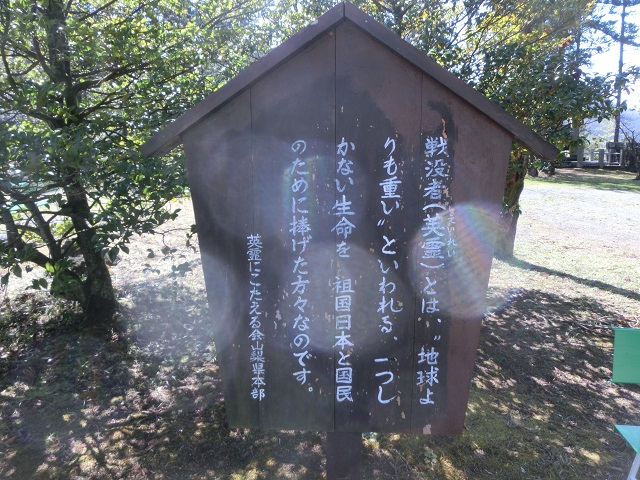 戦没者(英霊)とは、〝地球よ
えいれい
りも重い〟といわれる、一つし
かない生命を 祖国日本と国民
のために捧げた方々なのです。
英霊にこたえる会山梨県本部